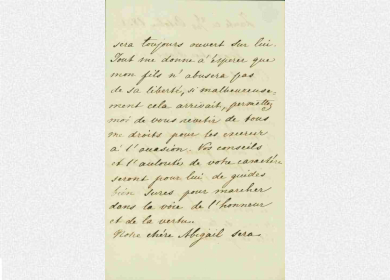 sera toujours ouvert sur lui.
Tout me donne à espérer que
mon fils n'abusera pas
de sa liberté, si malheureuse-
ment cela arrivait, permettez
moi de vous revêtir de tous
me droits pour les exercer
à l'occasion. Vos conseils
et l'autorité de votre caractère
seront pour lui de guides
bien sures pour marcher
dans la voie de l'honneur
et de la vertu.
Notre chère Abigail sera